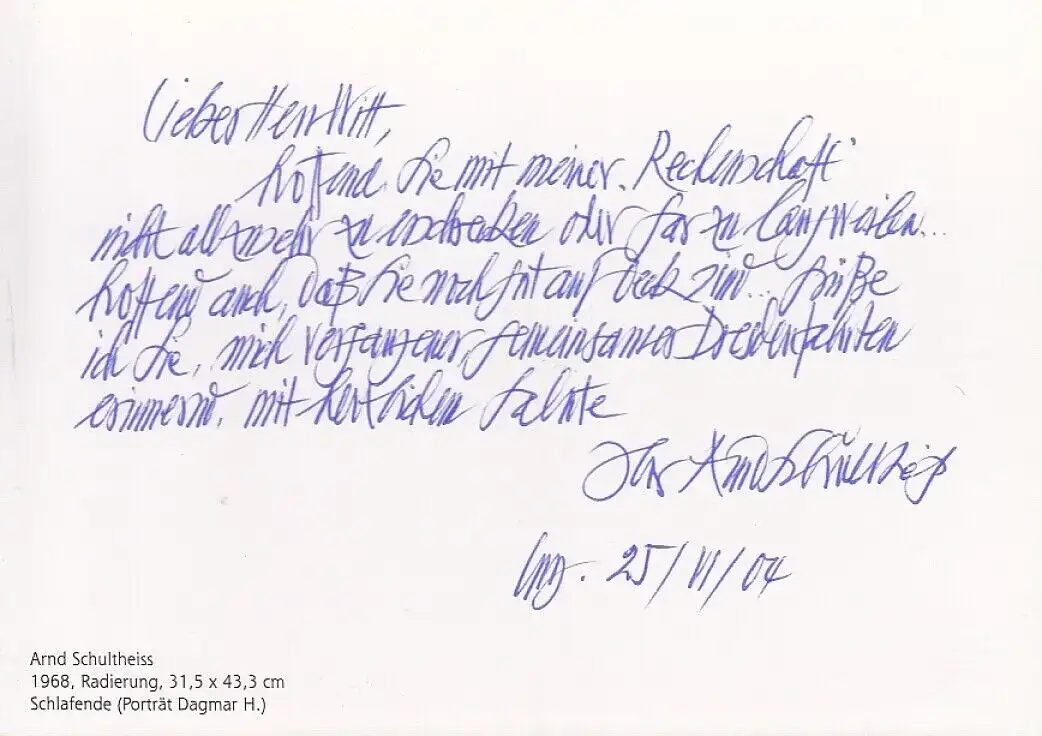 Lieber Herr Witt,
hoffend, Sie mit meiner „Rechenschaft“
nicht allzusehr zu erschrecken oder gar zu langweilen...
hoffend auch, daß Sie noch gut auf Deck sind... grüße
ich Sie, mich vergangener gemeinsamer Dresdenfahrten
erinnernd, mit herzlichem Salute
Ihr Arnd Schultheiß
25/VI/04
Arnd Schultheiss
1968, Radierung, 31,5 x 43,3 cm
Schlafende (Porträt Dagmar H.)